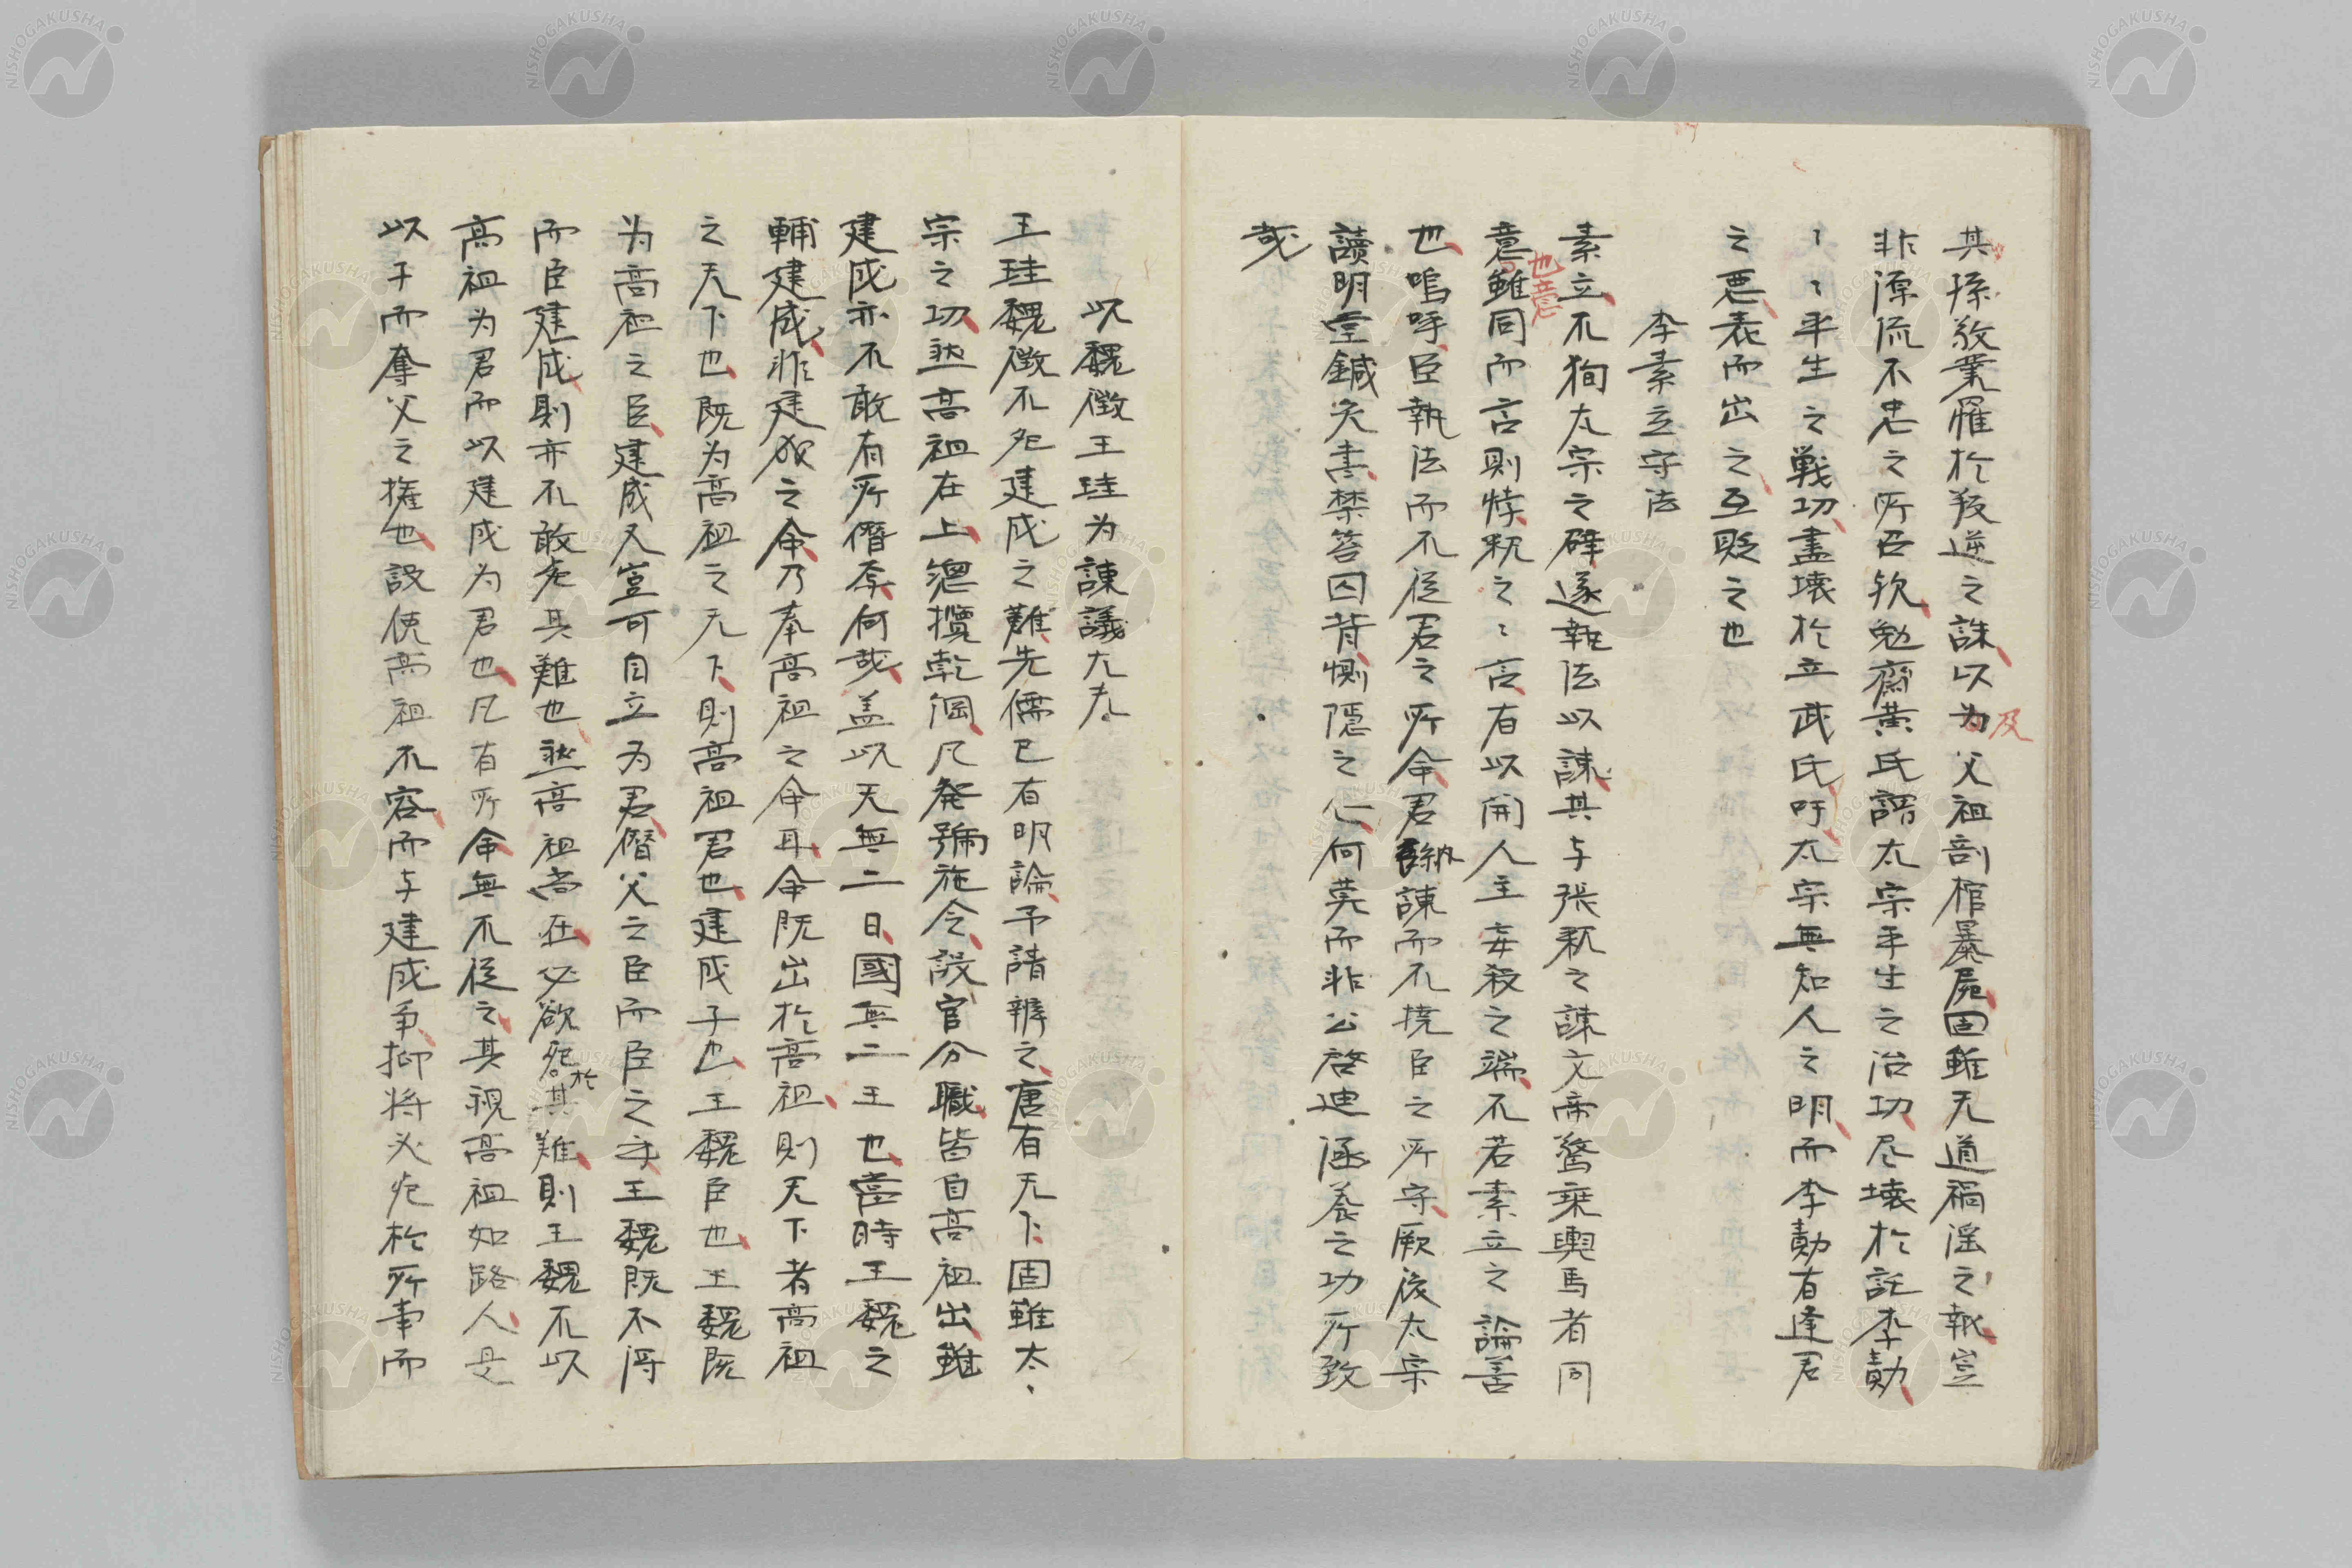 其孫敬業罹於叛逆之誅以为父祖剖棺暴屍固雖无道禍淫之報豈
及
非源流不忠之所召欤勉齋黄氏謂太宗平生之治功尽壊於託李勣
〻〻平生之戦功盡壊於立武氏吁太宗無知人之明而李勣有逢君
之悪表而出之互貶之也
李素立守法
素立不狥太宗之肆遂執法以諫其与張釈之諫文帝驚乗輿馬者同
也意
意雖同而言則悖釈之〻言有以開人主妄殺之端不若素立之論善
也嗚呼臣執法而不従君之所命君納諫而不撓臣之所守厥後太宗
讀明堂鍼灸書禁笞囚背惻隠之仁何莫而非公啓迪涵養之功所致
哉
以魏徴王珪为諫議大夫
王珪魏徴不死建成之難先儒已有明論予請辨之唐有天下固雖太
宗之功然高祖在上總攬乾綱凡発號施令設官分職皆自高祖出雖
建成亦不敢有所僭奈何哉盖以天無二日國無二王也當時王魏之
輔建成非建成之命乃奉高祖之命耳命既出於高祖則天下者高祖
之天下也既为高祖之天下則高祖君也建成子也王魏臣也王魏既
为高祖之臣建成又豈可自立为君僭父之臣而臣之乎王魏既不得
而臣建成則亦不敢死其難也然高祖尚在必欲死其難則王魏不以
於
高祖为君而以建成为君也凡有所命無不從之其視高祖如路人是
以子而奪父之権也設使高祖不容而与建成争抑将必死於所事而